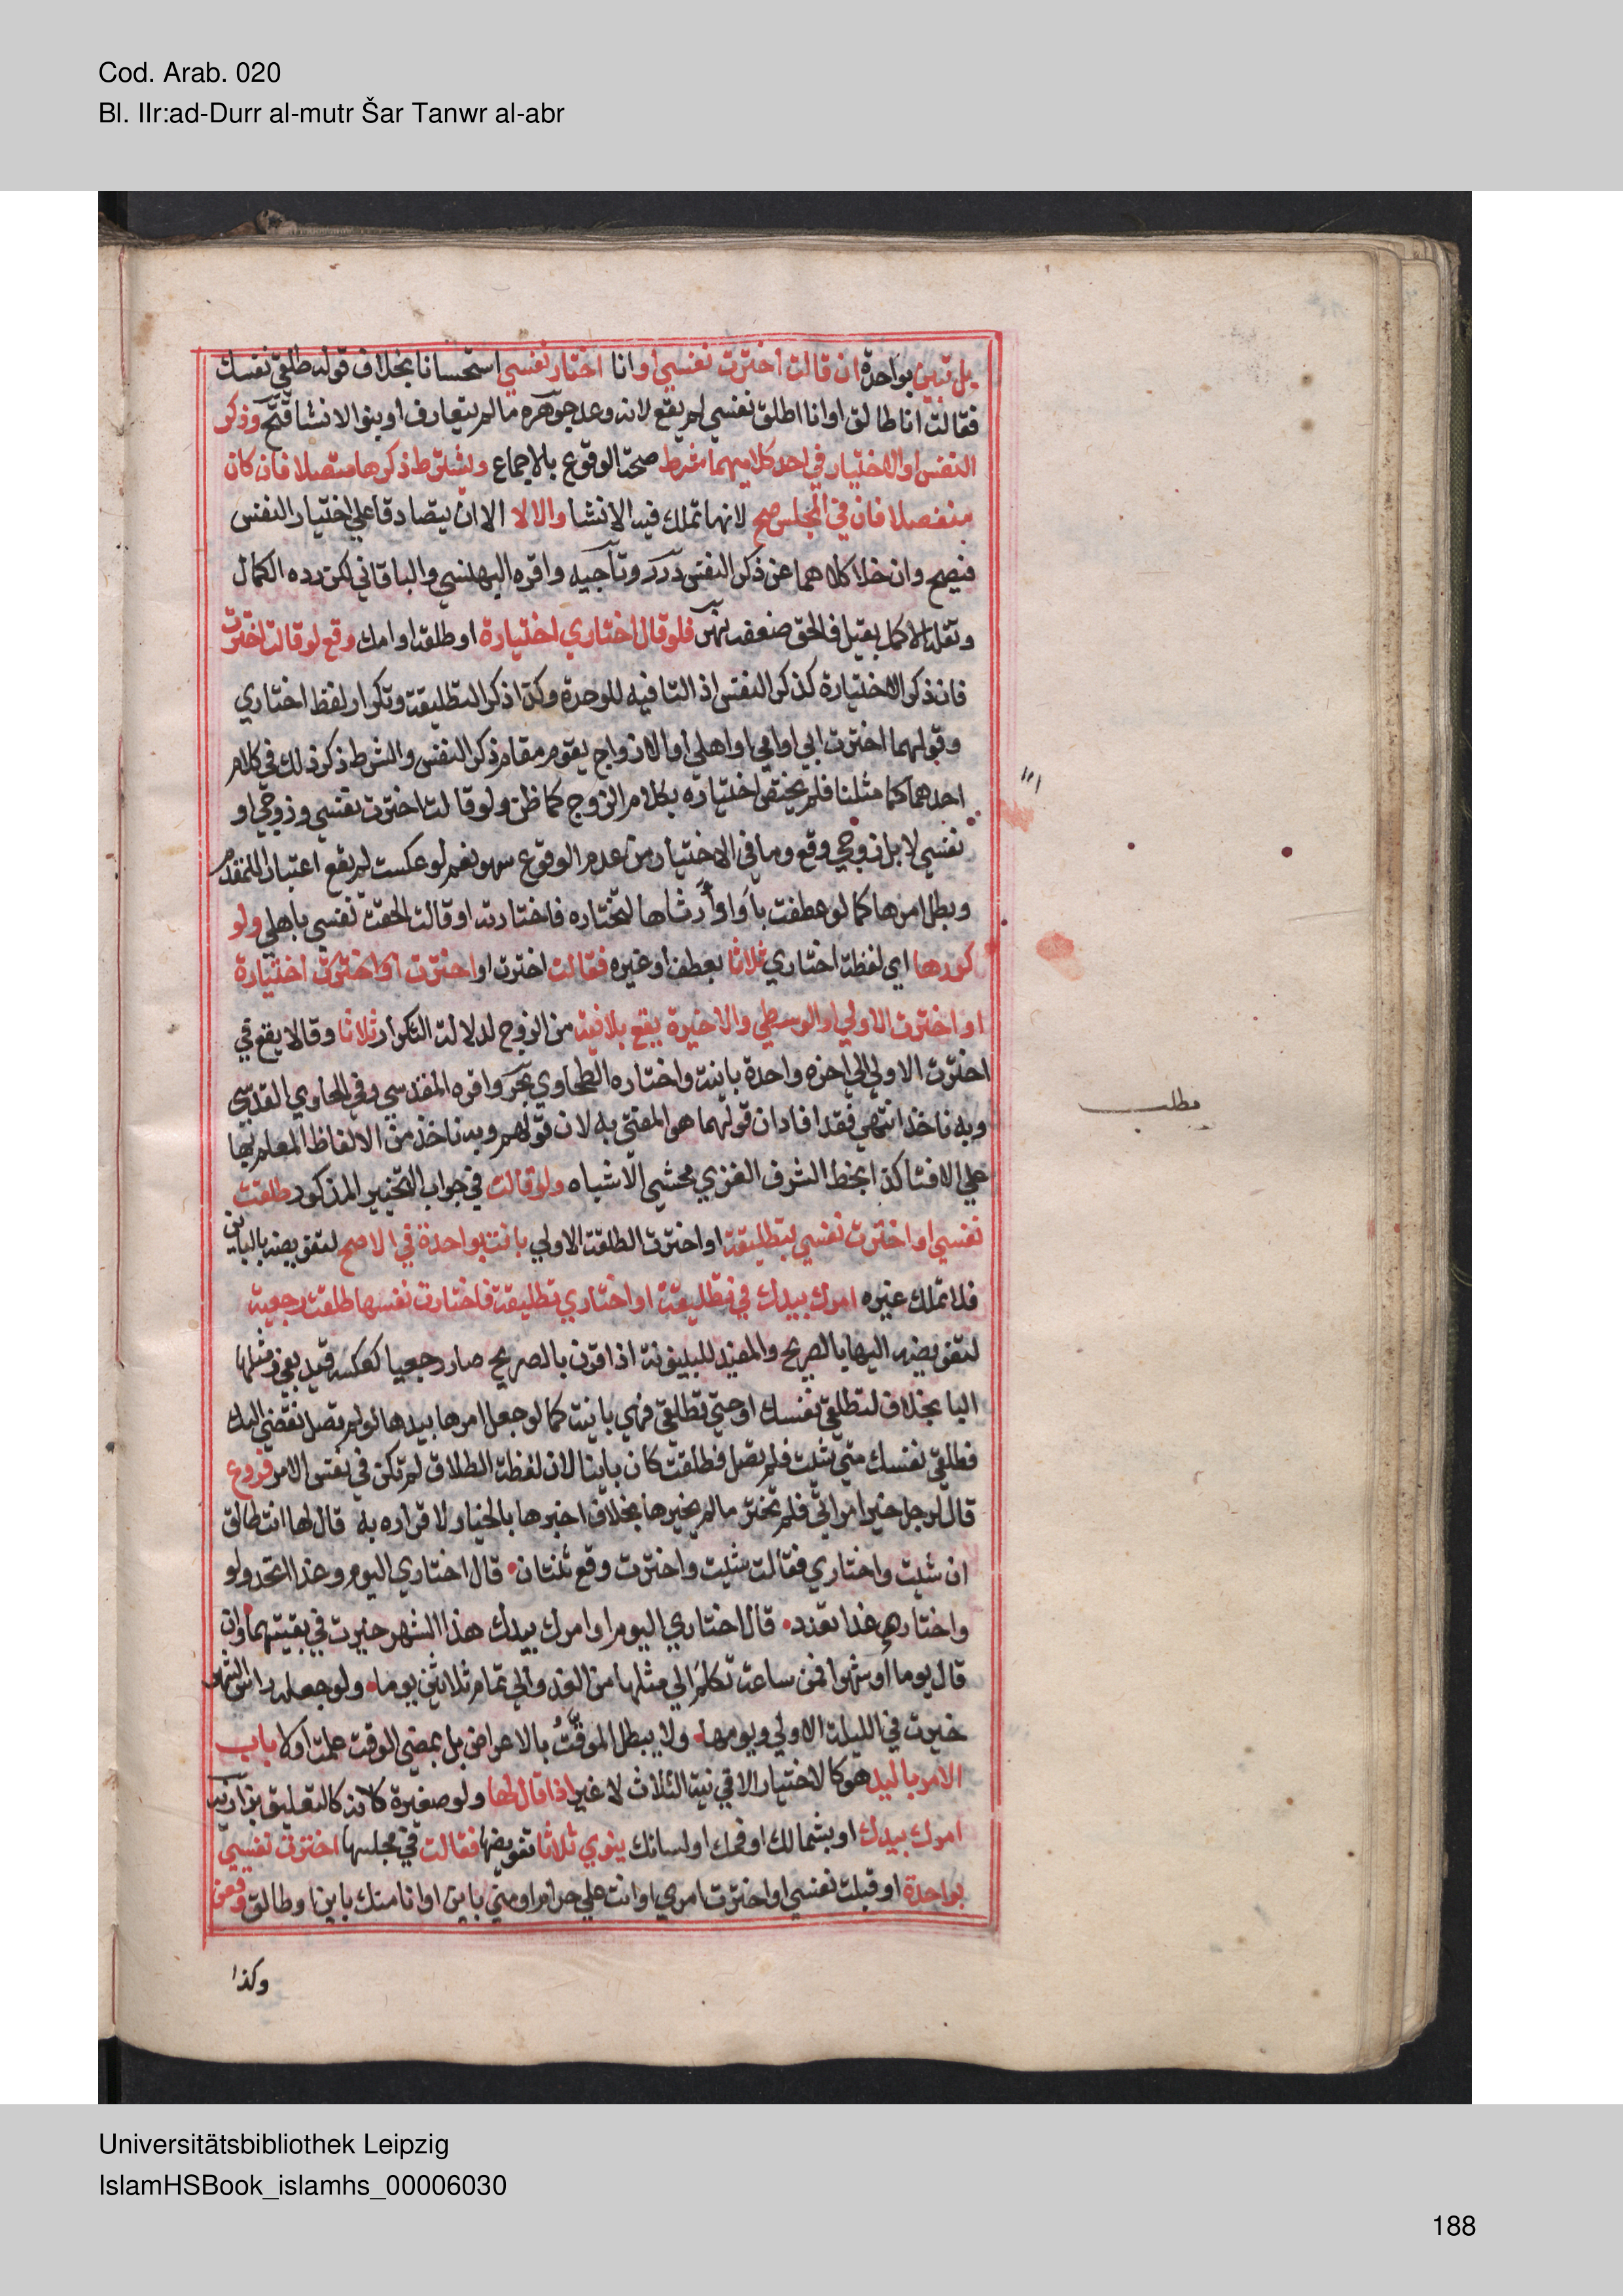 Cod. Arab. 020
Bl. IIr:ad-Durr al-mutr Šar Tanwr al-abr
بل تبين بواحدة ان قالت اخترت نفسي او انا اختار نفسي استحسانا بخلاف قوله طلقي نفسك
فقالت انا طالق او انا اطلق نفسي لم يقع لانه وعد جوهره مالم يتعارف او ينو الانشا فتح وذكر
النفس او الاختيار في احد كلاميهما شرط صحة الوقوع بالاجماع ويشترط ذكرها متصلا فان كان
منفصلا فان في المجلس صح لانها تملك فيه الانشا والا لا الا ان يتصادقا علي اختيار النفس
فيصح وان خلا كلامهما عن ذكر النفس درر وتاجيه واقره البهنسي والباقاني لكن رده الكمال
ونقله الاكمل بقيل فالحق ضعفه نهر فلو قال اختاري اختيارة او طلقة او امك وقع لو قالت اخترت
فان ذكر الاختيارة كذكر النفس اذ التا فيه للوحدة وكذا ذكر التطليقة وتكرار لفظ اختاري
وقولهما اخترت ابي او امي او اهلي او الازواج يقوم مقام ذكر النفس والشرط ذكر ذلك في كلام
احدهما كما مثلنا فلم يختص اختياره بكلام الزوج كما ظن ولو قالت اخترت نفسي وزوجي او
نفسي لا بل زوجي وقع وما في الاختيار من عدم الوقوع سهو نعم لو عكست لم يقع اعتبارا للمقدم
وبطل امرها كما لو عطفت باو او ارشاها لتختاره فاختارته او قالت الحقت نفسي باهلي ولو
كررها اي لفظة اختاري ثلاثا بعطف او غيره فقالت اخترت او اخترت اختيارة
او اخترت الاولي او الوسطي والاخيرة يقع بلا نية من الزوج لدلالة التكرار ثلاثا وقالا يقع في
اخترت الاولي الي اخره واحدة باينة واختاره الطحاوي بحر واقره المقدسي وفي الحاوي القدسي
وبه ناخذ انتهي فقد افاد ان قولهما هو المفتي به لان قولهم وبه ناخذ من الالفاظ المعلم بها
علي الافتا كذا بخط الشرف الغزي محشي الاشباه ولو قالت في جواب التخيير المذكور طلقت
نفسي او اخترت نفسي بتطليقة او اخترت الطلقة الاولي بانت بواحدة في الاصح لتفويضه بالباين
فلا تملك غيره امرك بيدك في تطليقة او اختاري تطليقة فاختارت نفسها طلقت رجعية
لتفويضه اليها بالصريح والمفيد للبينونة اذا اقرن بالصريح صار رجعيا كعكسه قيد بفي ومثلها
البا بخلاف لتطلقي نفسك او حتي تطلقي فهي باينة كما لو جعل امرها بيدها لو لم تصل نفقتي اليك
فطلقي نفسك متي شئت فلم تصل فطلقت كان باينا لان لفظة الطلاق لم تكن في نفس الامر فروع
قال لرجل خير امراتي فلم تختر مالم يخيرها بخلاف اخبرها بالخيار لاقراره به قال لها انت طالق
ان شئت واختاري فقالت شئت واخترت وقع ثنتان قال اختاري اليوم وغدا اتحد ولو
واختاري غدا تعدد قال اختاري اليوم او امرك بيدك هذا الشهر خيرت في بقيتهما وان
قال يوما او شهرا فمن ساعة تكلم الي مثلها من الغد والي تمام ثلاثين يوما ولو جعله راس الشهر
خيرت في الليلة الاولي ويومها ولا يبطل الموقت بالاعراض بل بمضي الوقت علمت اولا باب
الامر باليد هو كالاختيار الا في نية الثلاث لا غير اذا قال لها ولو صغيرة لانه كالتعليق بزازيه
امرك بيدك او بشمالك او فمك او لسانك ينوي ثلاثا تفويضها فقالت في مجلسها اخترت نفسي
بواحدة او قبلت نفسي او اخترت امري او انت علي حرام او مني باين او انا منك باين او طالق وقعن
وكذا
مطلب
Universitätsbibliothek Leipzig
IslamHSBook_islamhs_00006030
188